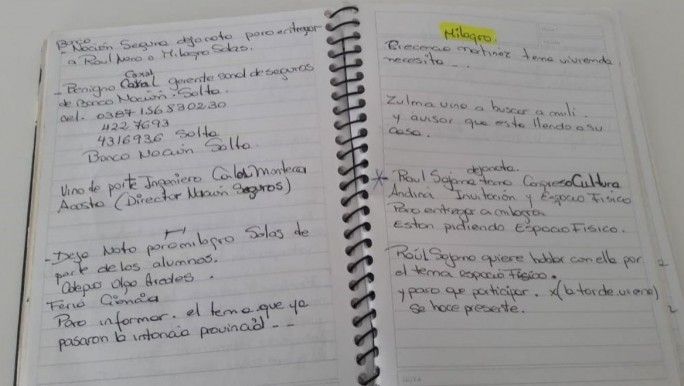 Banco
- Nación Seguros dejo nota para entregar
a Raul Noro o Milagro Salas.
- Benigno Caxal gerente zonal de seguros
de Banco Nación. Salta.
cel. 0387 156830230
4227693
4316936 Salta
Banco Nación Salta.
Vino de parte Ingeniero Carlos Monteca
Acosta (Director Nación Seguros)
- Dejo Nota para milagro Salas de
parte de los alumnos.
Colegio Olga Arades.
Feria Ciencia
Para informar. el tema que ya
pasaron la intancia provincial - -
Milagro.
Crecencio martinez tema vivienda
necesita - - .
Zulma vino a buscar a mili.
y avisar que esta llendo a su
casa.
dejo nota.
* Raul Sajama tema Congreso Cultura
Andina Invitación y Espacio Fisico
Para entregar a milagro
Estan pidiendo Espacio Fisico.
Raúl Sajama quiere hablar con ella por
el tema espacio Fisico.
y para que participar. x (la tarde. viene)
se hace presente.